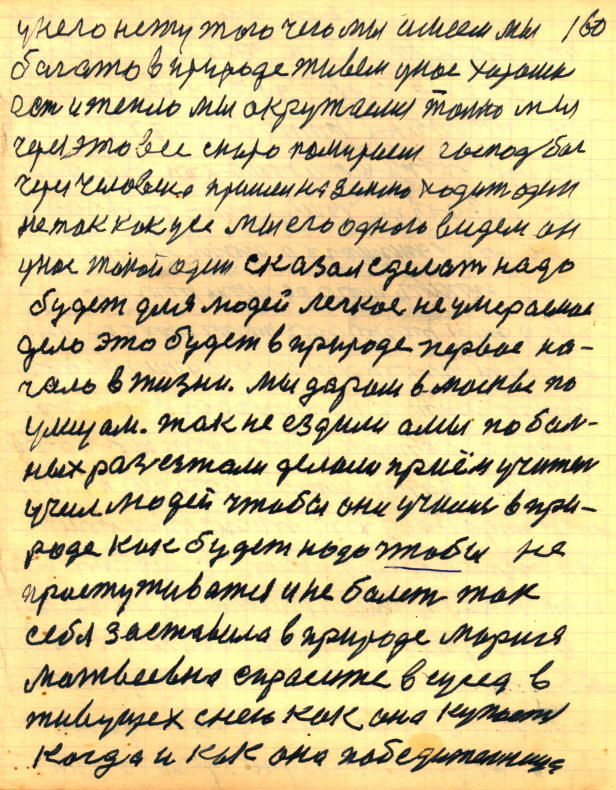 у него нету того чего мы имеем мы 160
багато в природе живем у нас хараши
ест и тепло мы окружаемы толко мы
через это все скоро помираем господ бог
через человека пришел на землю ходит один
не так как усе мы его одного видем он
у нас такой один сказал сделат надо
будет для людей легкое не умераемае
дело это будет в природе первае на-
чало в жизни. мы даром в москве по
улицам. так не ездили а мы по бал-
ных разезжали делали приём учител
учил людей чтобы они учили в при-
роде как будет надо чтобы не
простуживатся и не балет так
себя заставила в природе Мария
Матвеевна спрасите в сусед в
живущех с нею как она купает
когда и как она победителница